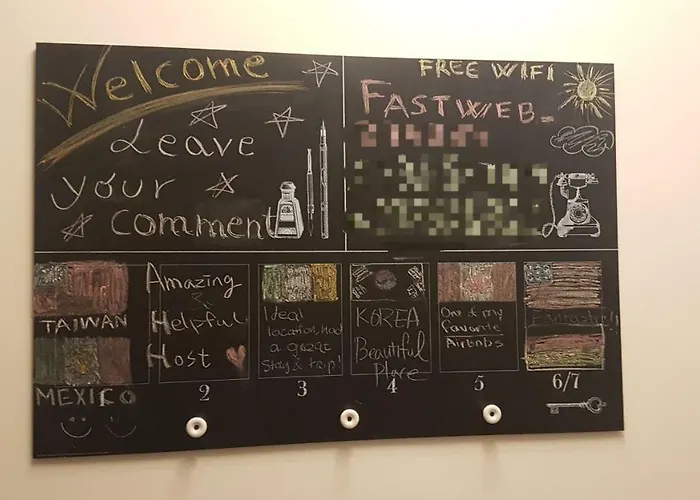 Welcome
Leave
your
comment
FREE WIFI
FASTWEB-
TAIWAN
MEXICO
Amazing
Helpful
Host
2
Ideal
location, had
a great
stay & trip!
3
KOREA
Beautiful
Place
4
One of my
favorite
Airbnbs
5
Fantastic!!
6/7